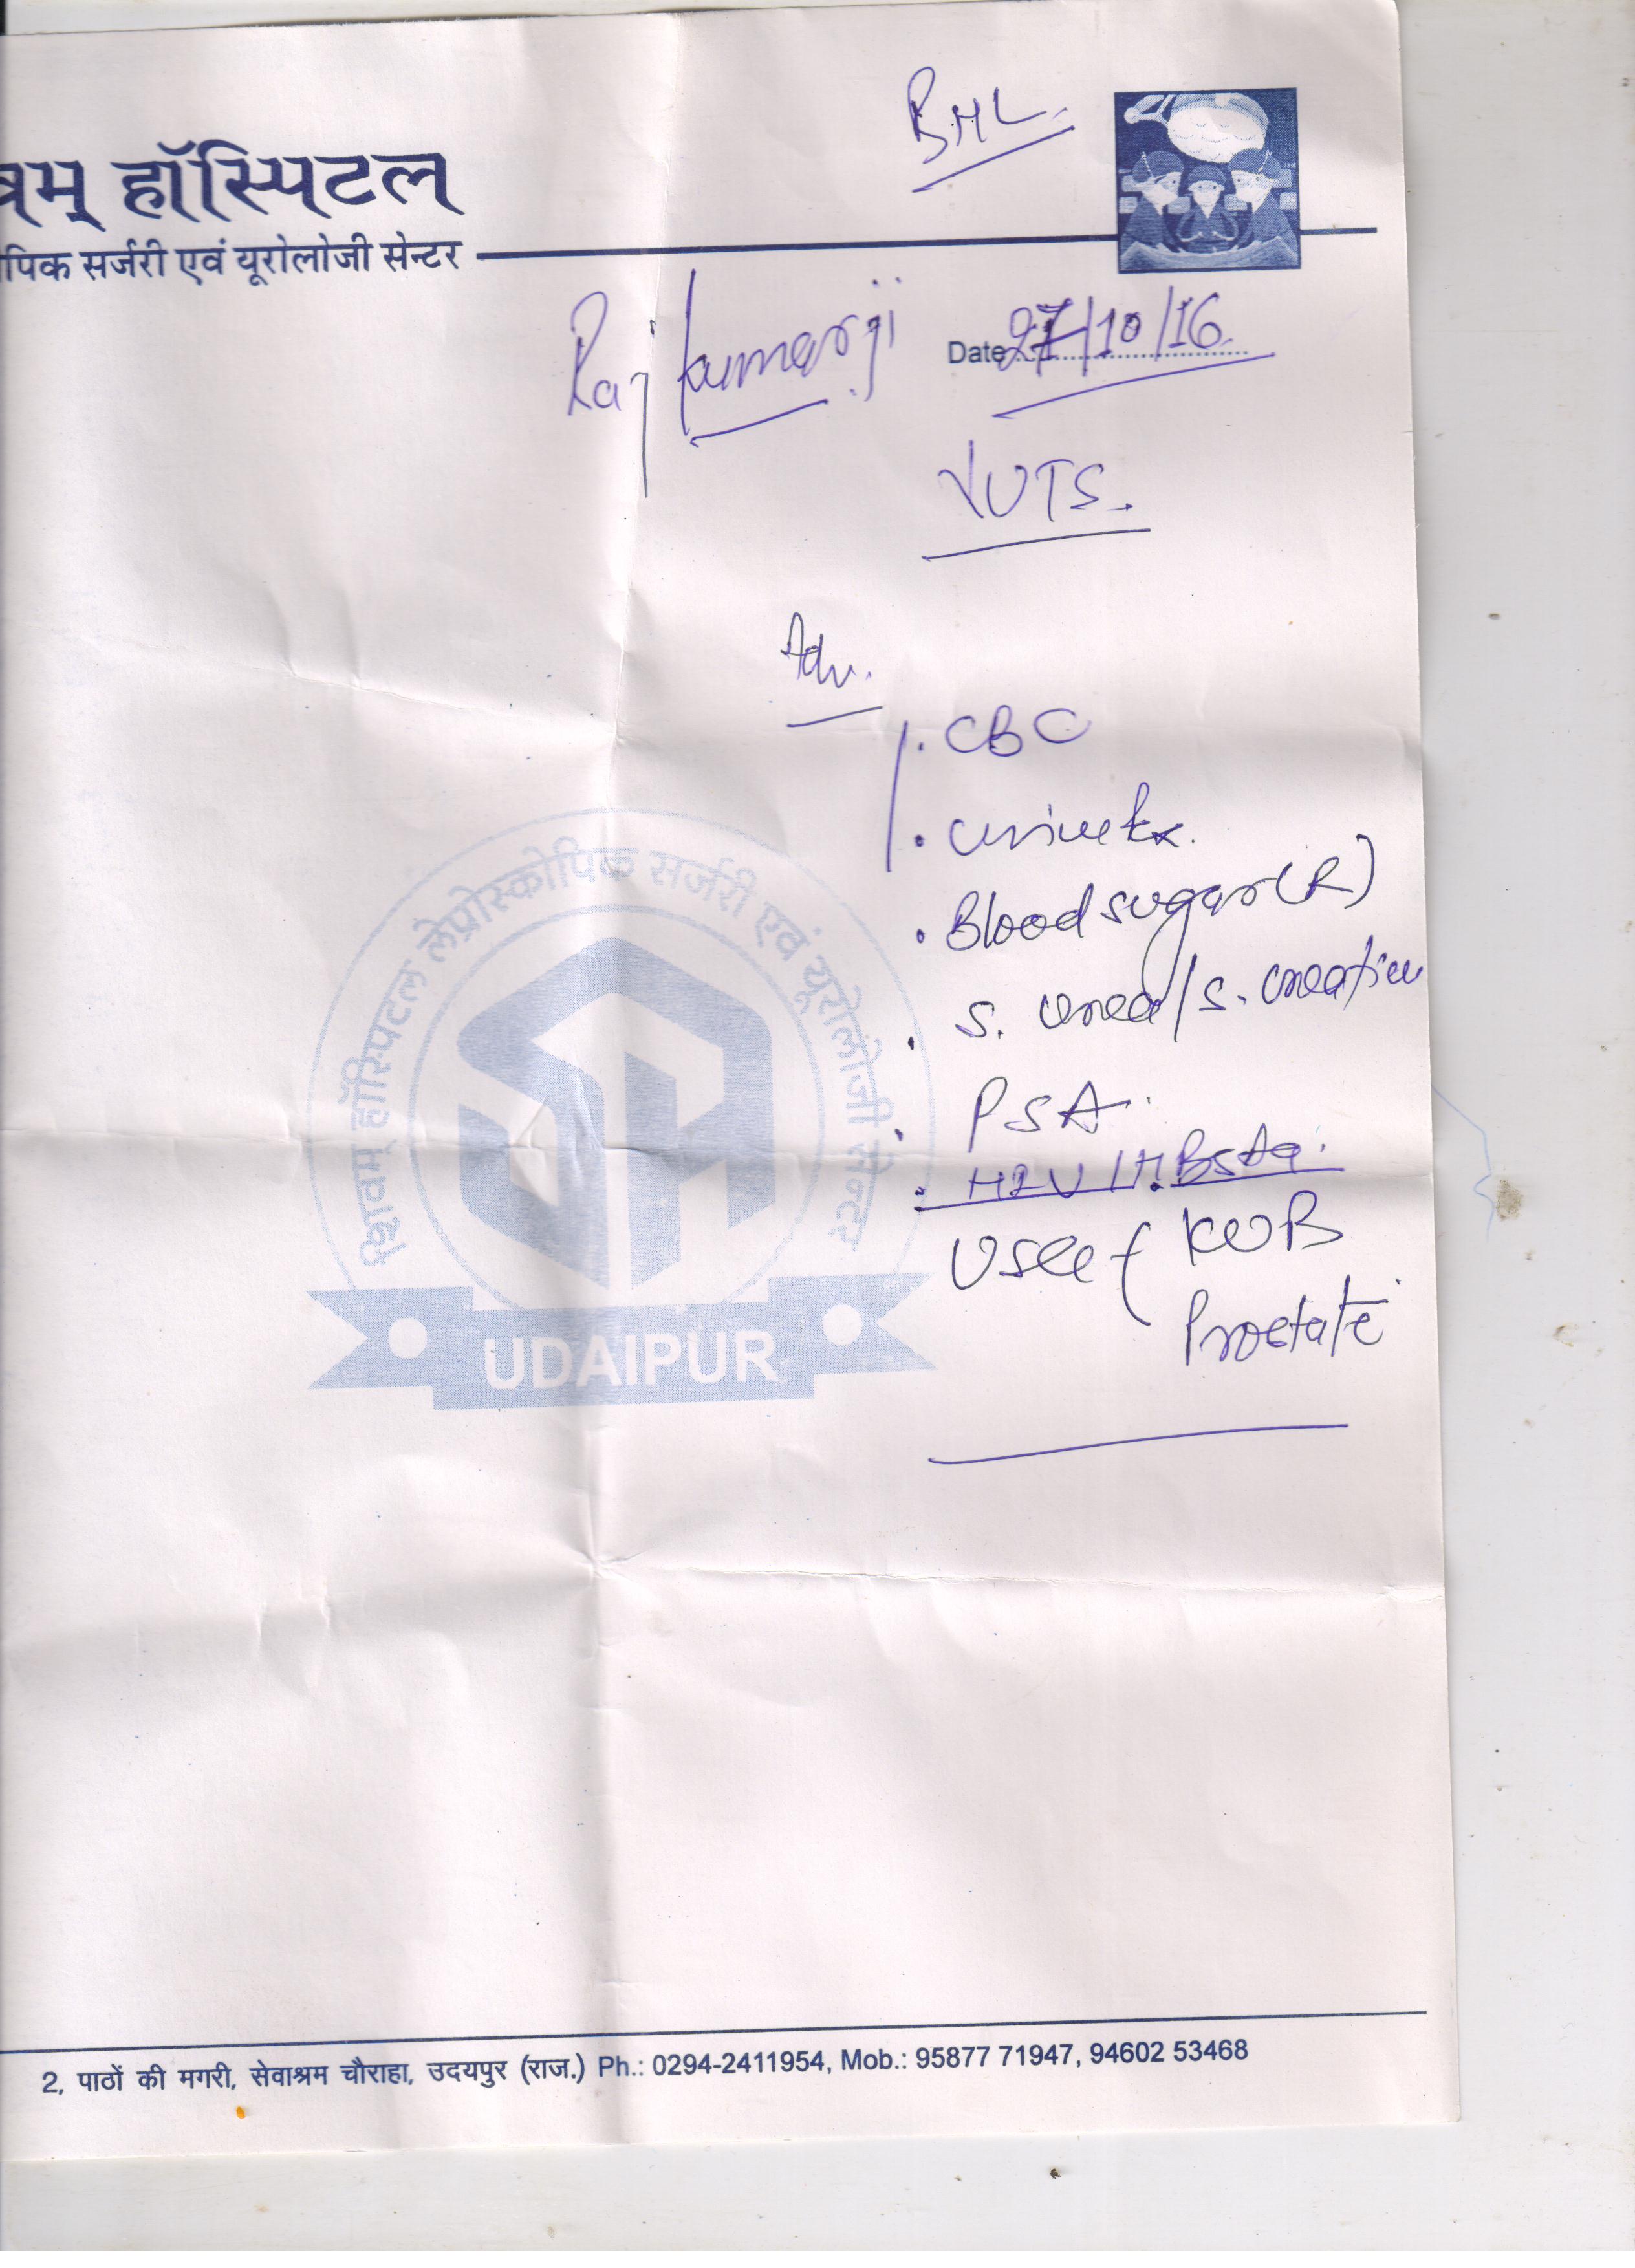 BHL.
हॉस्पिटल
सर्जरी एवं यूरोलोजी सेन्टर
Raj kumarji
Date 27/10/16
LUTS.
Adv.
. CBC
. urine Ex.
. Blood sugar (R)
. S. urea / S. creatine
. PSA.
. HIV / HBsAg.
USG of KUB
Prostate
शिवम् हॉस्पिटल लेप्रोस्कोपिक सर्जरी एवं यूरोलोजी सेन्टर
UDAIPUR
2, पाठों की मगरी, सेवाश्रम चौराहा, उदयपुर (राज.) Ph.: 0294-2411954, Mob.: 95877 71947, 94602 53468